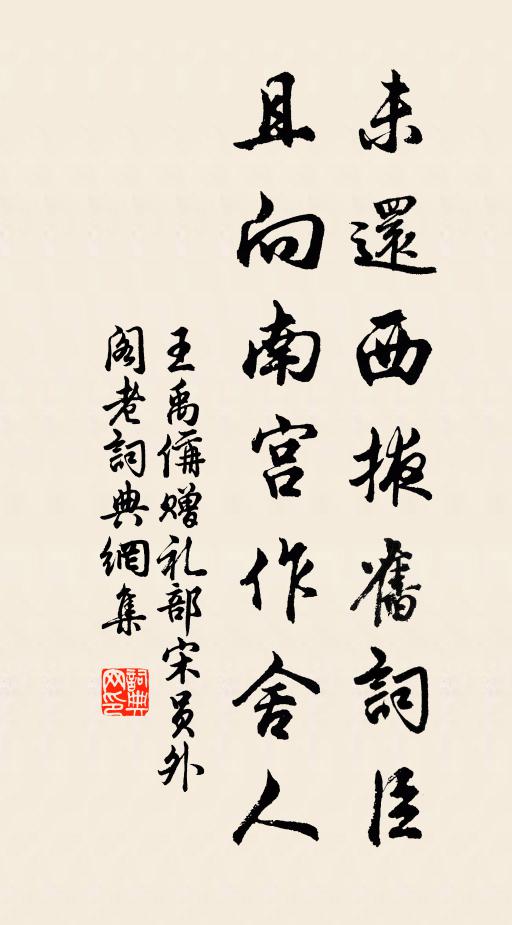 未還西掖舊詞臣
且向南宮作舍人
王禹偁贈礼部宋员外
阁老詞典網集
詞典网印